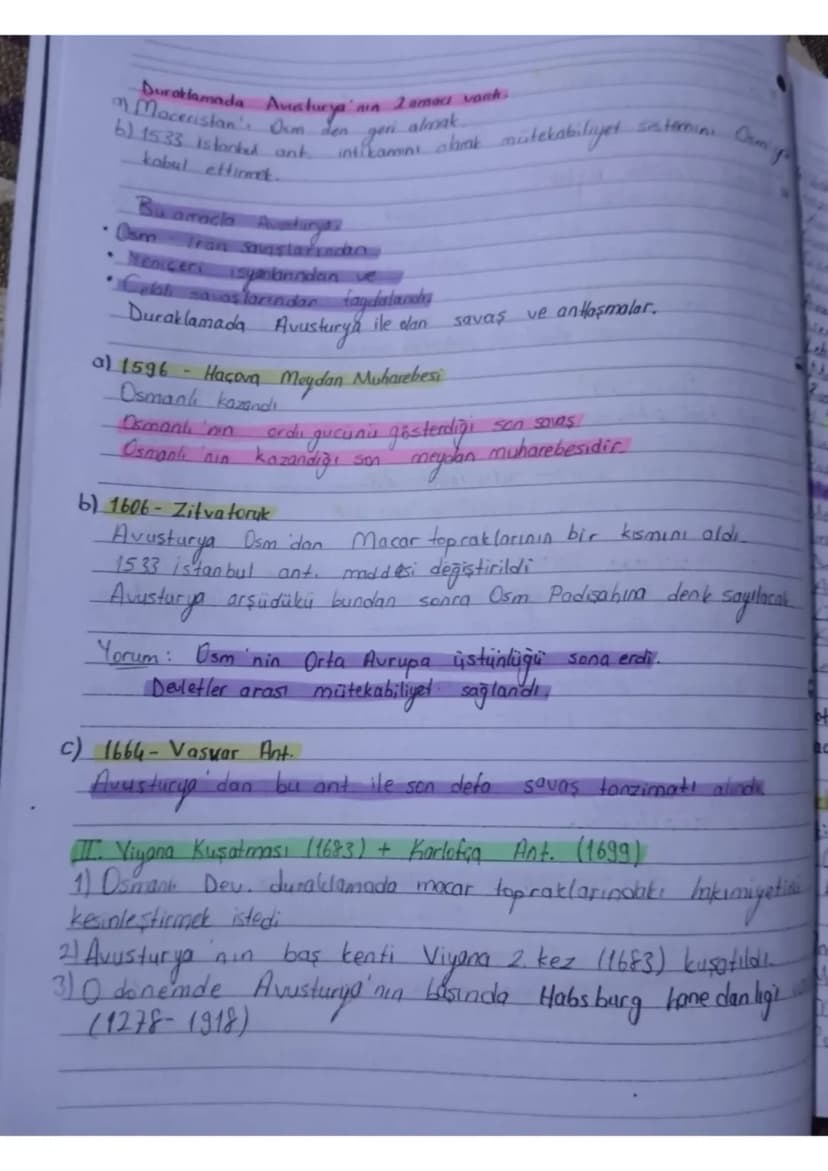 Duraklamada Avusturya'nın 2 amacı vardı.
a) Macaristan'ı Osm den geri almak
b) 1533 İstanbul ant. intikamını almak mütekabiliyet sistemini Osm
kabul ettirmek.
Bu amaçla Avusturya
• Osm - İran savaşlarından
• Yeniçeri isyanlarından ve
• Celali savaşlarından faydalandı
Duraklamada Avusturya ile olan savaş ve antlaşmalar.
a) 1596 - Haçova Meydan Muharebesi
Osmanlı kazandı
Osmanlı'nın ordu gucunu gösterdiği son savaş
Osmanlı'nın kazandığı son meydan muharebesidir.
b) 1606 - Zitvatoruk
Avusturya Osm'dan Macar topraklarının bir kısmını aldı.
1533 istanbul ant. maddesi değiştirildi
Avusturya arşüdükü bundan sonra Osm Padişahına denk sayılacak
Yorum: Osm'nin Orta Avrupa üstünlüğü sona erdi.
Devletler arası mütekabiliyet sağlandı,
c) 1664 - Vasvar Ant.
Avusturya'dan bu ant ile son defa savaş tanzimatı alındı
II. Viyana Kuşatması (1683) + Karlofça Ant. (1699)
1) Osmanlı Dev. duraklamada macar topraklarındaki hakimiyetini
kesinleştirmek istedi
2) Avusturya'nın baş kenti Viyana 2. kez (1683) kuşatıldı.
3) O dönemde Avusturya'nın başında Habsburg hanedanlığı
(1278 - 1918)